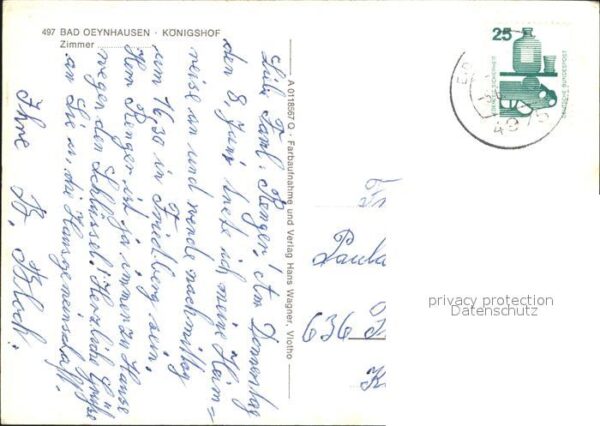 497 BAD OEYNHAUSEN · KÖNIGSHOF
Zimmer
Liebe Faml. Renger! Am Donnerstag
den 8. Juni trete ich meine Heim=
reise an und werde nachmittag
um 16,30 in Friedberg sein.
Herr Renger ist ja immer zu Hause
wegen den Schlüssel! Herzliche Grüße
an Sie u. die Hausgemeinschaft.
Ihre H. Bloch.
A 0118567 Q · Farbaufnahme und Verlag Hans Wagner, Vlotho
25
DEUTSCHE BUNDESPOST
497
636
privacy protection
Datenschutz